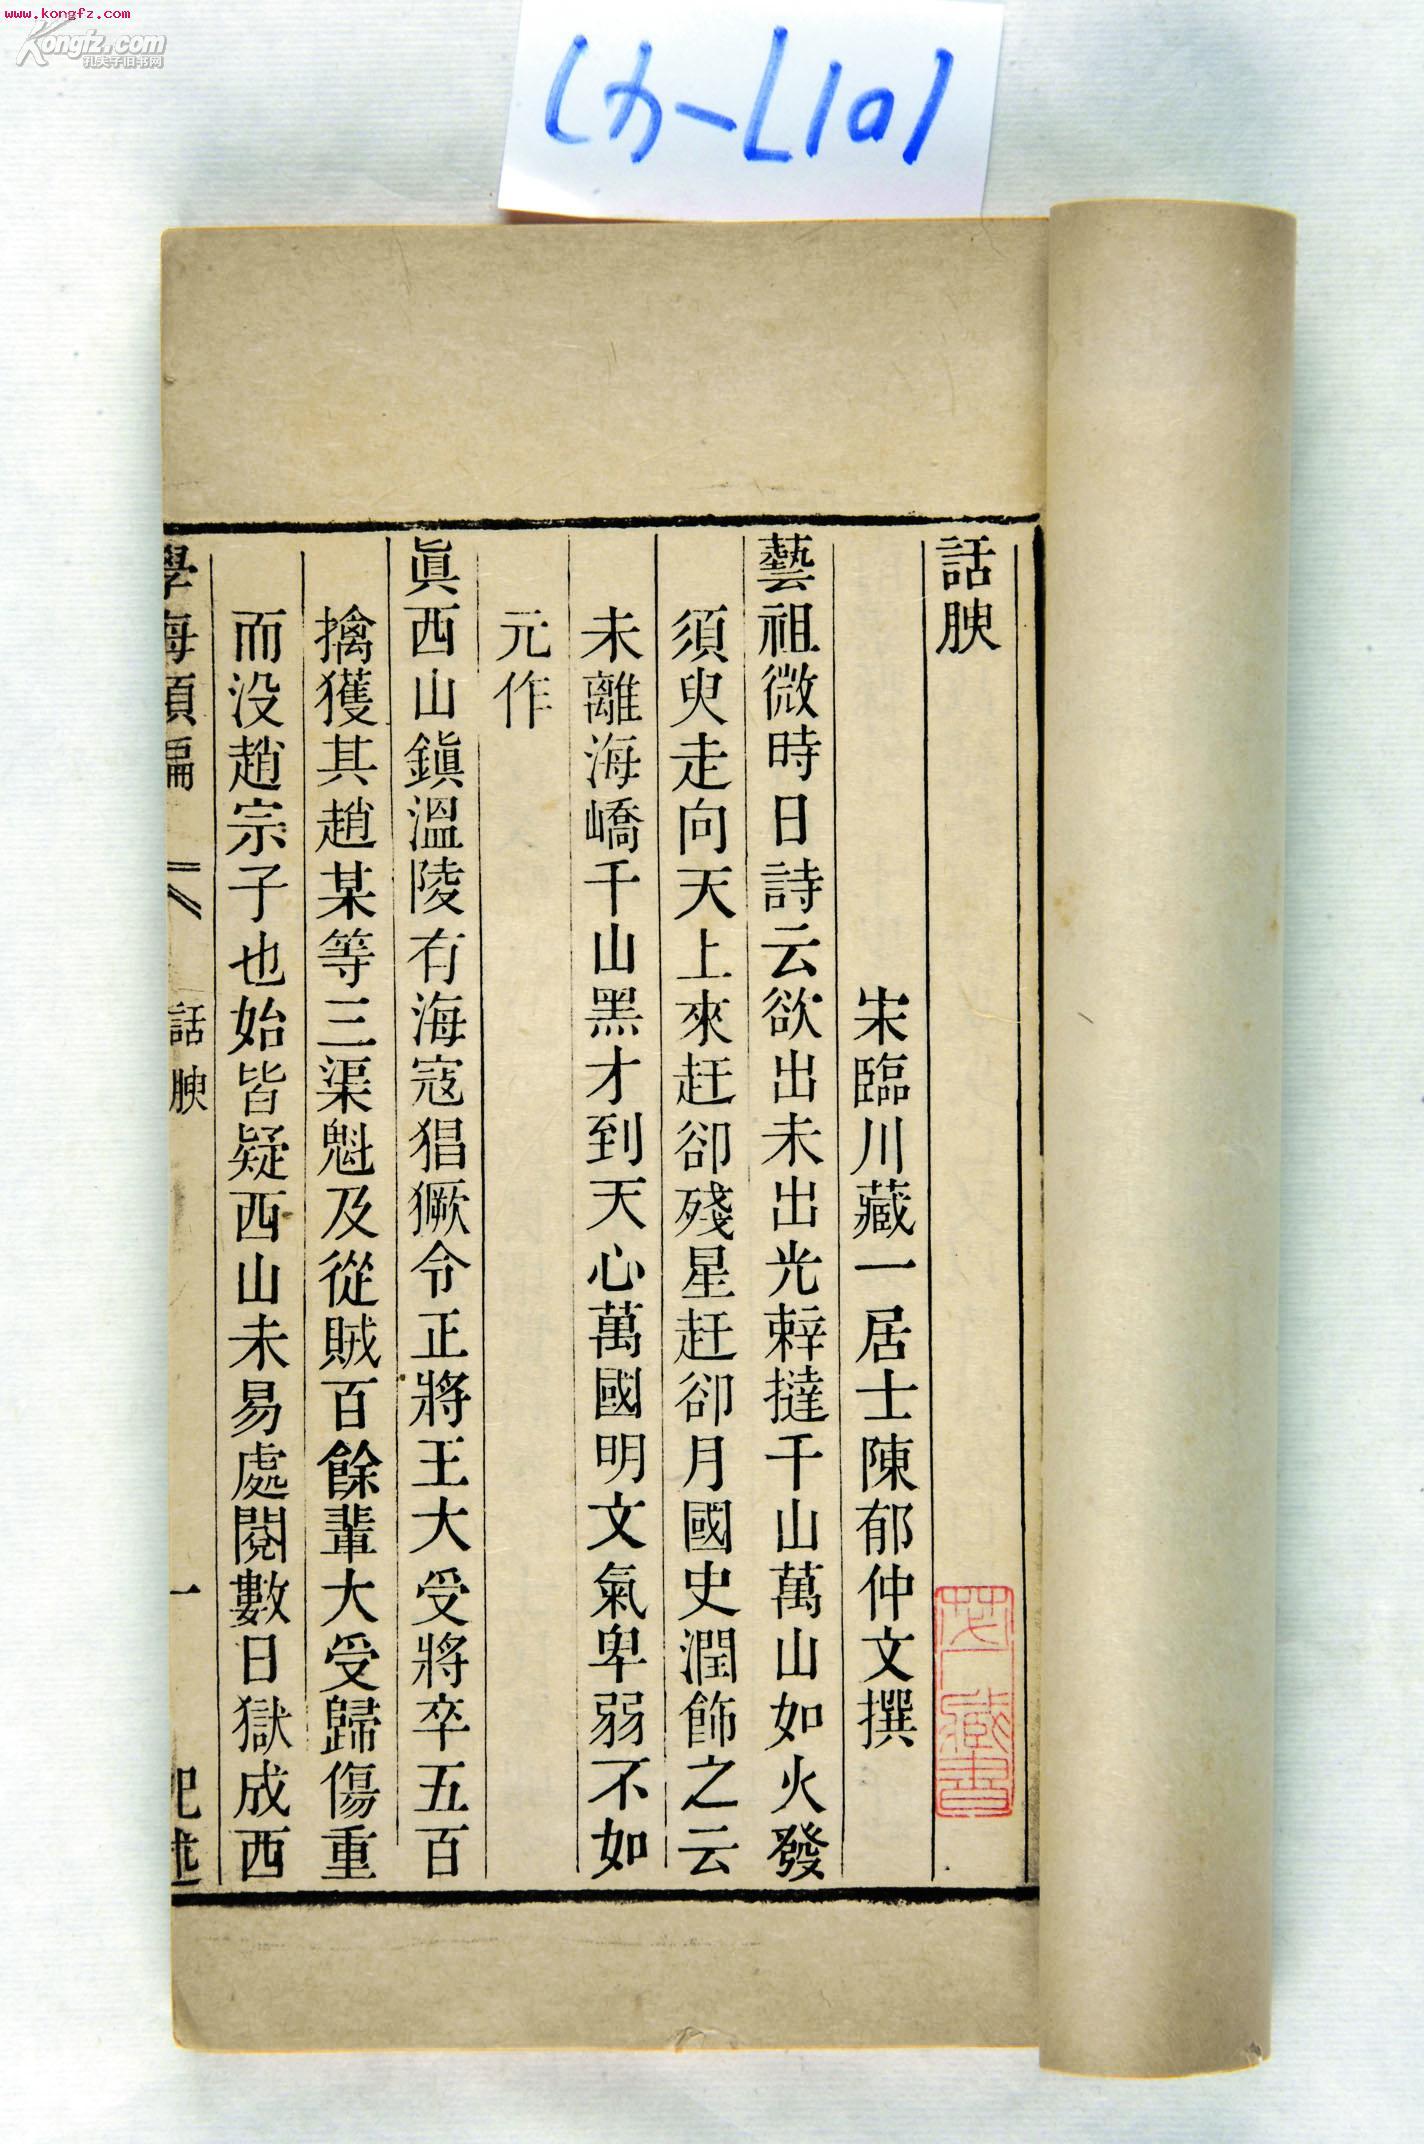 www.kongfz.com
Kongfz.com
孔夫子旧书网
話腴
宋臨川藏一居士陳郁仲文撰
藝祖微時日詩云欲出未出光辣撻千山萬山如火發
須臾走向天上來赶卻殘星赶卻月國史潤飾之云
未離海嶠千山黑才到天心萬國明文氣卑弱不如
元作
眞西山鎮溫陵有海寇猖獗令正將王大受將卒五百
擒獲其趙某等三渠魁及從賊百餘輩大受歸傷重
而没趙宗子也始皆疑西山未易處閱數日獄成西
學海類編
話腴
一
記述
藏書